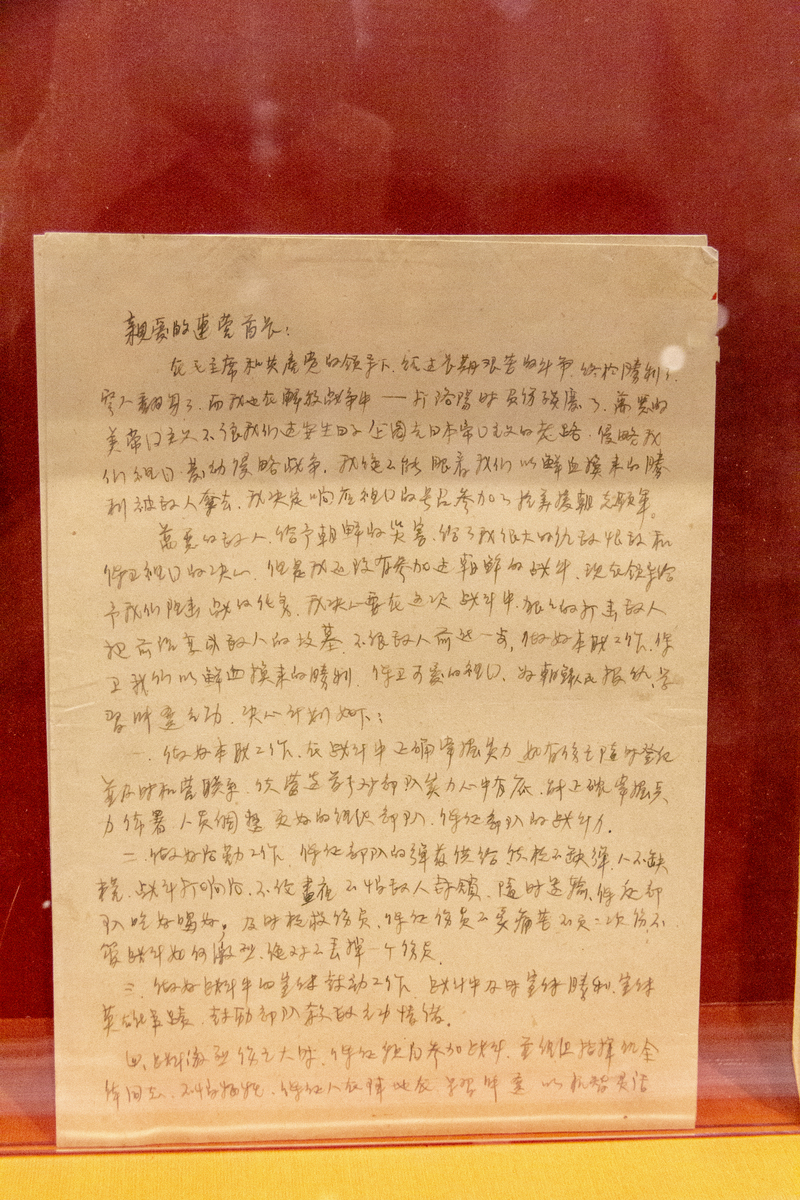 親爱的連营首长：
在毛主席和共产党的领导下，经过长期艰苦的斗争，终於勝利了，
穷人翻身了，而我也在解放战争中——打洛陽时負伤残廢了，萬恶的
美帝国主义不让我们过安生日子，企圖走日本帝国主义的老路，侵略我
们祖国，发动侵略战争，我绝不能眼看我们以鮮血换来的勝
利被敌人奪去，我决定响应祖国的号召参加了抗美援朝志願軍。
萬恶的敌人，给予朝鮮的災害，给了我很大的仇敌恨敌和
保卫祖国的决心，但是我还没有参加过朝鮮的战斗，现在领导给
予我们阻击战的任务，我决心要在这次战斗中，狠狠的打击敌人
把前沿变成敌人的坟墓，不让敌人前进一步，做好本职工作，保
卫我们以鮮血换来的勝利，保卫可爱的祖国，为朝鮮人民报仇，学
習 立功，决心计划如下：
一、做好本职工作，在战斗中正确掌握实力，如有伤亡随时登记
並及时和营联系，使营连首 对部队实力心中有底， 正确掌握兵
力佈署，人员調整，更好的组织部队，保证部队的战斗力。
二、做好后勤工作，保证部队的弹葯供给，使枪不缺弹，人不缺
粮，战斗打响后，不分晝夜，不怕敌人封鎖，随时运输，保证部
队吃好喝好。及时抢救伤员，保证伤员不受痛苦，不负二次伤，不
管战斗如何激烈，绝对不丢掉一个伤员。
三、做好战斗中的宣传鼓动工作，战斗中及时宣传勝利，宣传
英雄事蹟，鼓励部队杀敌立功情绪。
四、战斗激烈伤亡大时，保证 参加战斗， 组织指挥
同志，不怕牺牲，保证人在陣地在，学習 以机智灵活